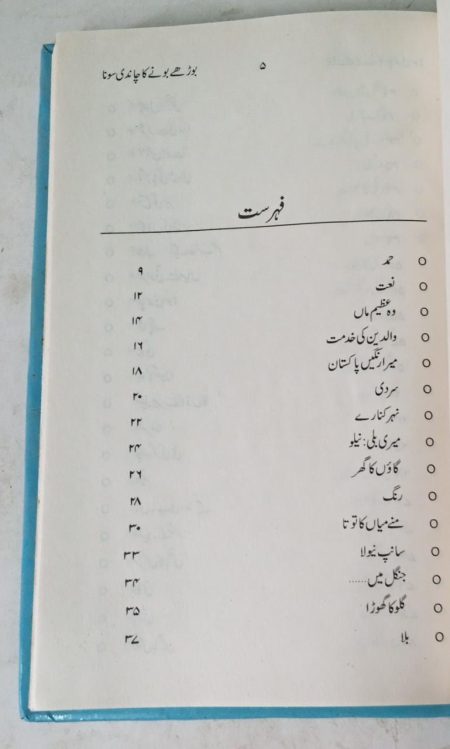 بوڑھے بونے کا چاندی سونا ۵
فہرست
حمد ۹
نعت ۱۲
وہ عظیم ماں ۱۴
والدین کی خدمت ۱۶
میرا رنگیں پاکستان ۱۸
سردی ۲۰
نہر کنارے ۲۲
میری بلی: نیلو ۲۴
گاؤں کا گھر ۲۶
رنگ ۲۸
منے میاں کا توتا ۳۰
سانپ نیولا ۳۳
جنگل میں...... ۳۴
گلو کا گھوڑا ۳۵
بلا ۳۷